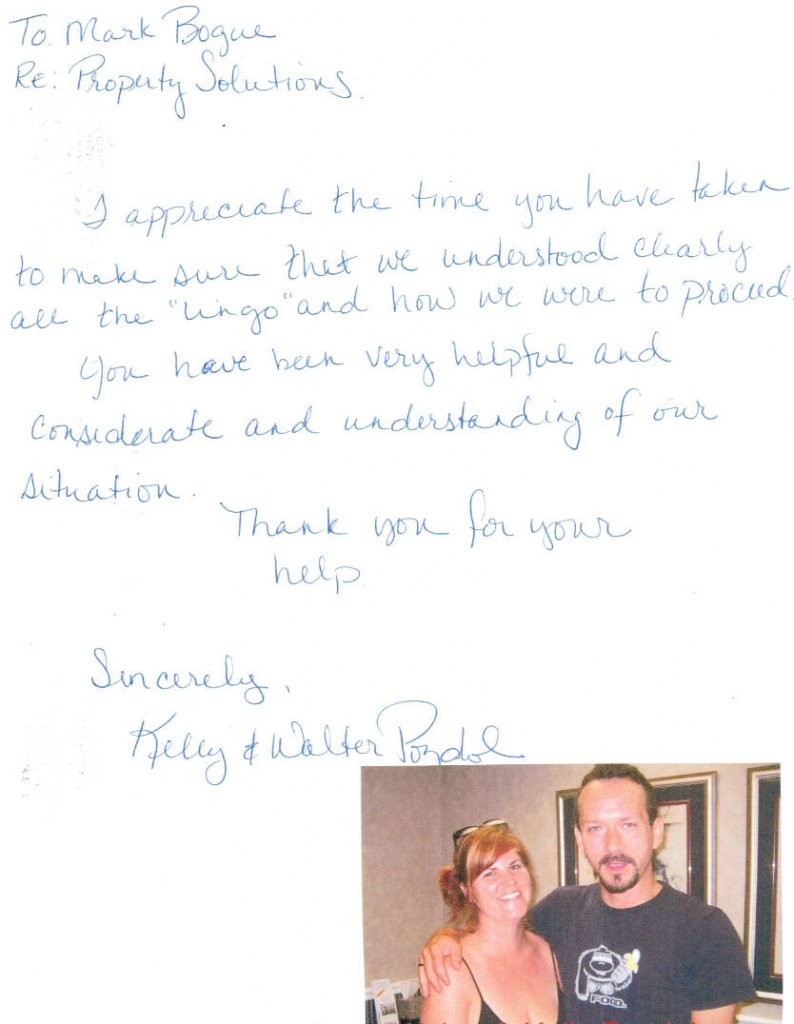 To. Mark Bogue
Re: Property Solutions.
I appreciate the time you have taken
to make sure that we understood clearly
all the "lingo" and how we were to proceed.
You have been very helpful and
considerate and understanding of our
situation.
Thank you for your
help.
Sincerely,
Kelly & Walter